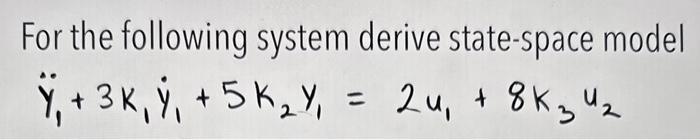 For the following system derive state-space model
ÿ₁ + 3K₁ẏ₁ + 5K₂y₁ = 2u₁ + 8K₃u₂